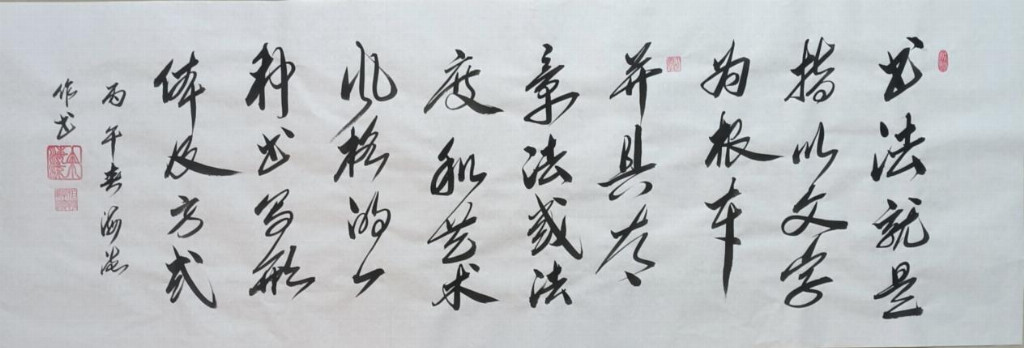 书法就是
指以文字
为根本
并具有
章法或法
度和艺术
风格的一
种书写形
体及方式
丙午春海
作书